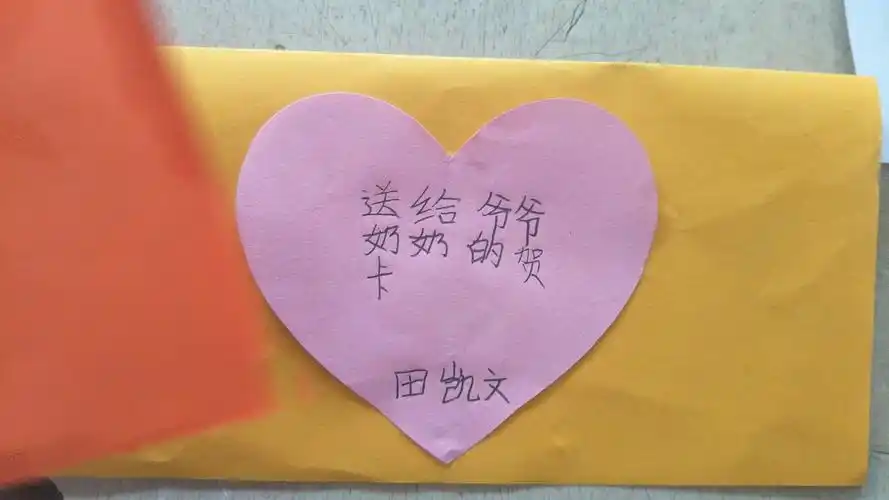 送给爷爷
奶奶的贺
卡
田凯文